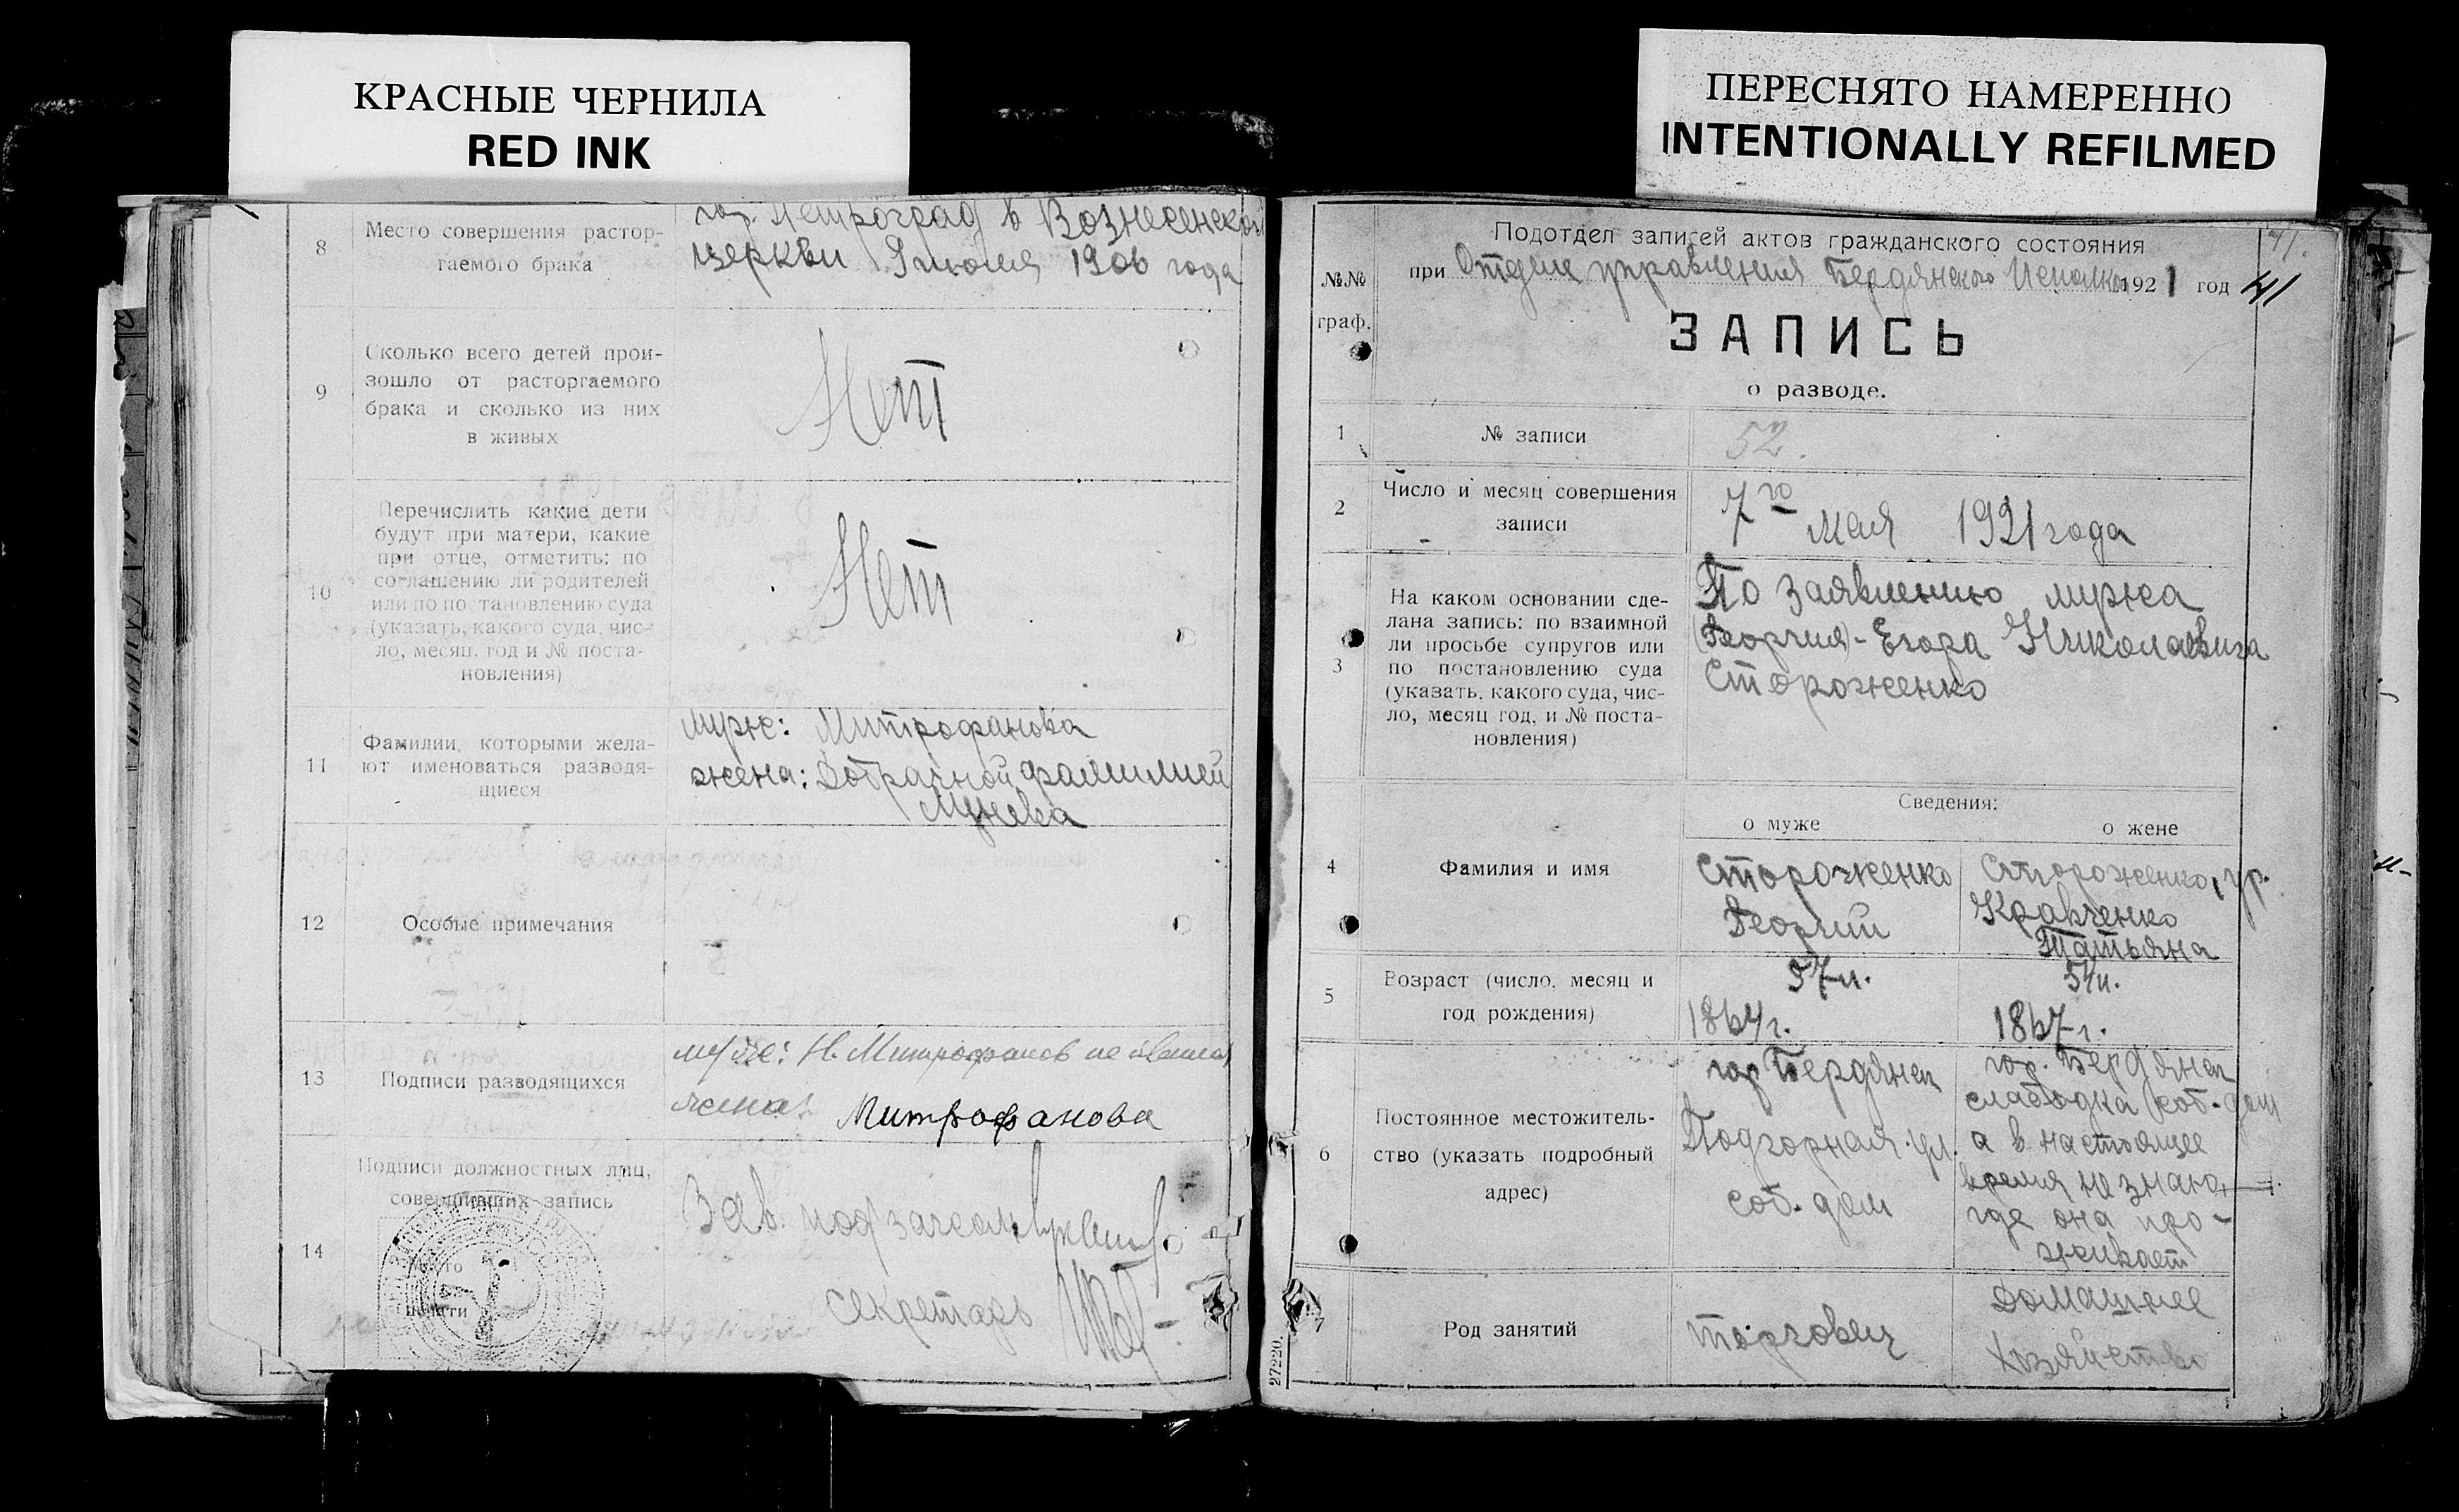 КРАСНЫЕ ЧЕРНИЛА
RED INK
8
Место совершения растор-
гаемого брака
гор. Петроград в Вознесенской
церкви 9 июля 1906 года
9
Сколько всего детей прои-
зошло от расторгаемого
брака и сколько из них
в живых
Нет
10
Перечислить какие дети
будут при матери, какие
при отце, отметить: по
соглашению ли родителей
или по постановлению суда
(указать, какого суда, чис-
ло, месяц, год и № поста-
новления)
Нет
11
Фамилии, которыми жела-
ют именоваться разводя-
щиеся
муж: Митрофанова
жена: Добрачной фамилией
12
Особые примечания
13
Подписи разводящихся
муж: Н. Митрофанов
жена: Митрофанова
14
Подписи должностных лиц,
совершивших запись
Место
печати
Зав. под
Секретарь
ПЕРЕСНЯТО НАМЕРЕННО
INTENTIONALLY REFILMED
41.
№№
граф.
Подотдел записей актов гражданского состояния
при Отделе управления Бердянского Исполкома 1921 год 41
ЗАПИСЬ
о разводе.
1
№ записи
52.
2
Число и месяц совершения
записи
7го мая 1921 года
3
На каком основании сде-
лана запись: по взаимной
ли просьбе супругов или
по постановлению суда
(указать, какого суда, чис-
ло, месяц год, и № поста-
новления)
По заявлению мужа
(Георгия)-Егора Николаевича
Стороженко
Сведения:
о муже
о жене
4
Фамилия и имя
Стороженко
Георгий
Стороженко, ур.
Кравченко
Татьяна
5
Возраст (число, месяц и
год рождения)
57 л.
1864 г.
54 л.
1867 г.
6
Постоянное местожитель-
ство (указать подробный
адрес)
гор Бердянск
Подгорная ул.
соб. дом
гор. Бердянск
слабодка соб. дом
а в настоящее
время не знаю,
где она про-
живает
7
Род занятий
торговец
домашнее
хозяйство
27220.